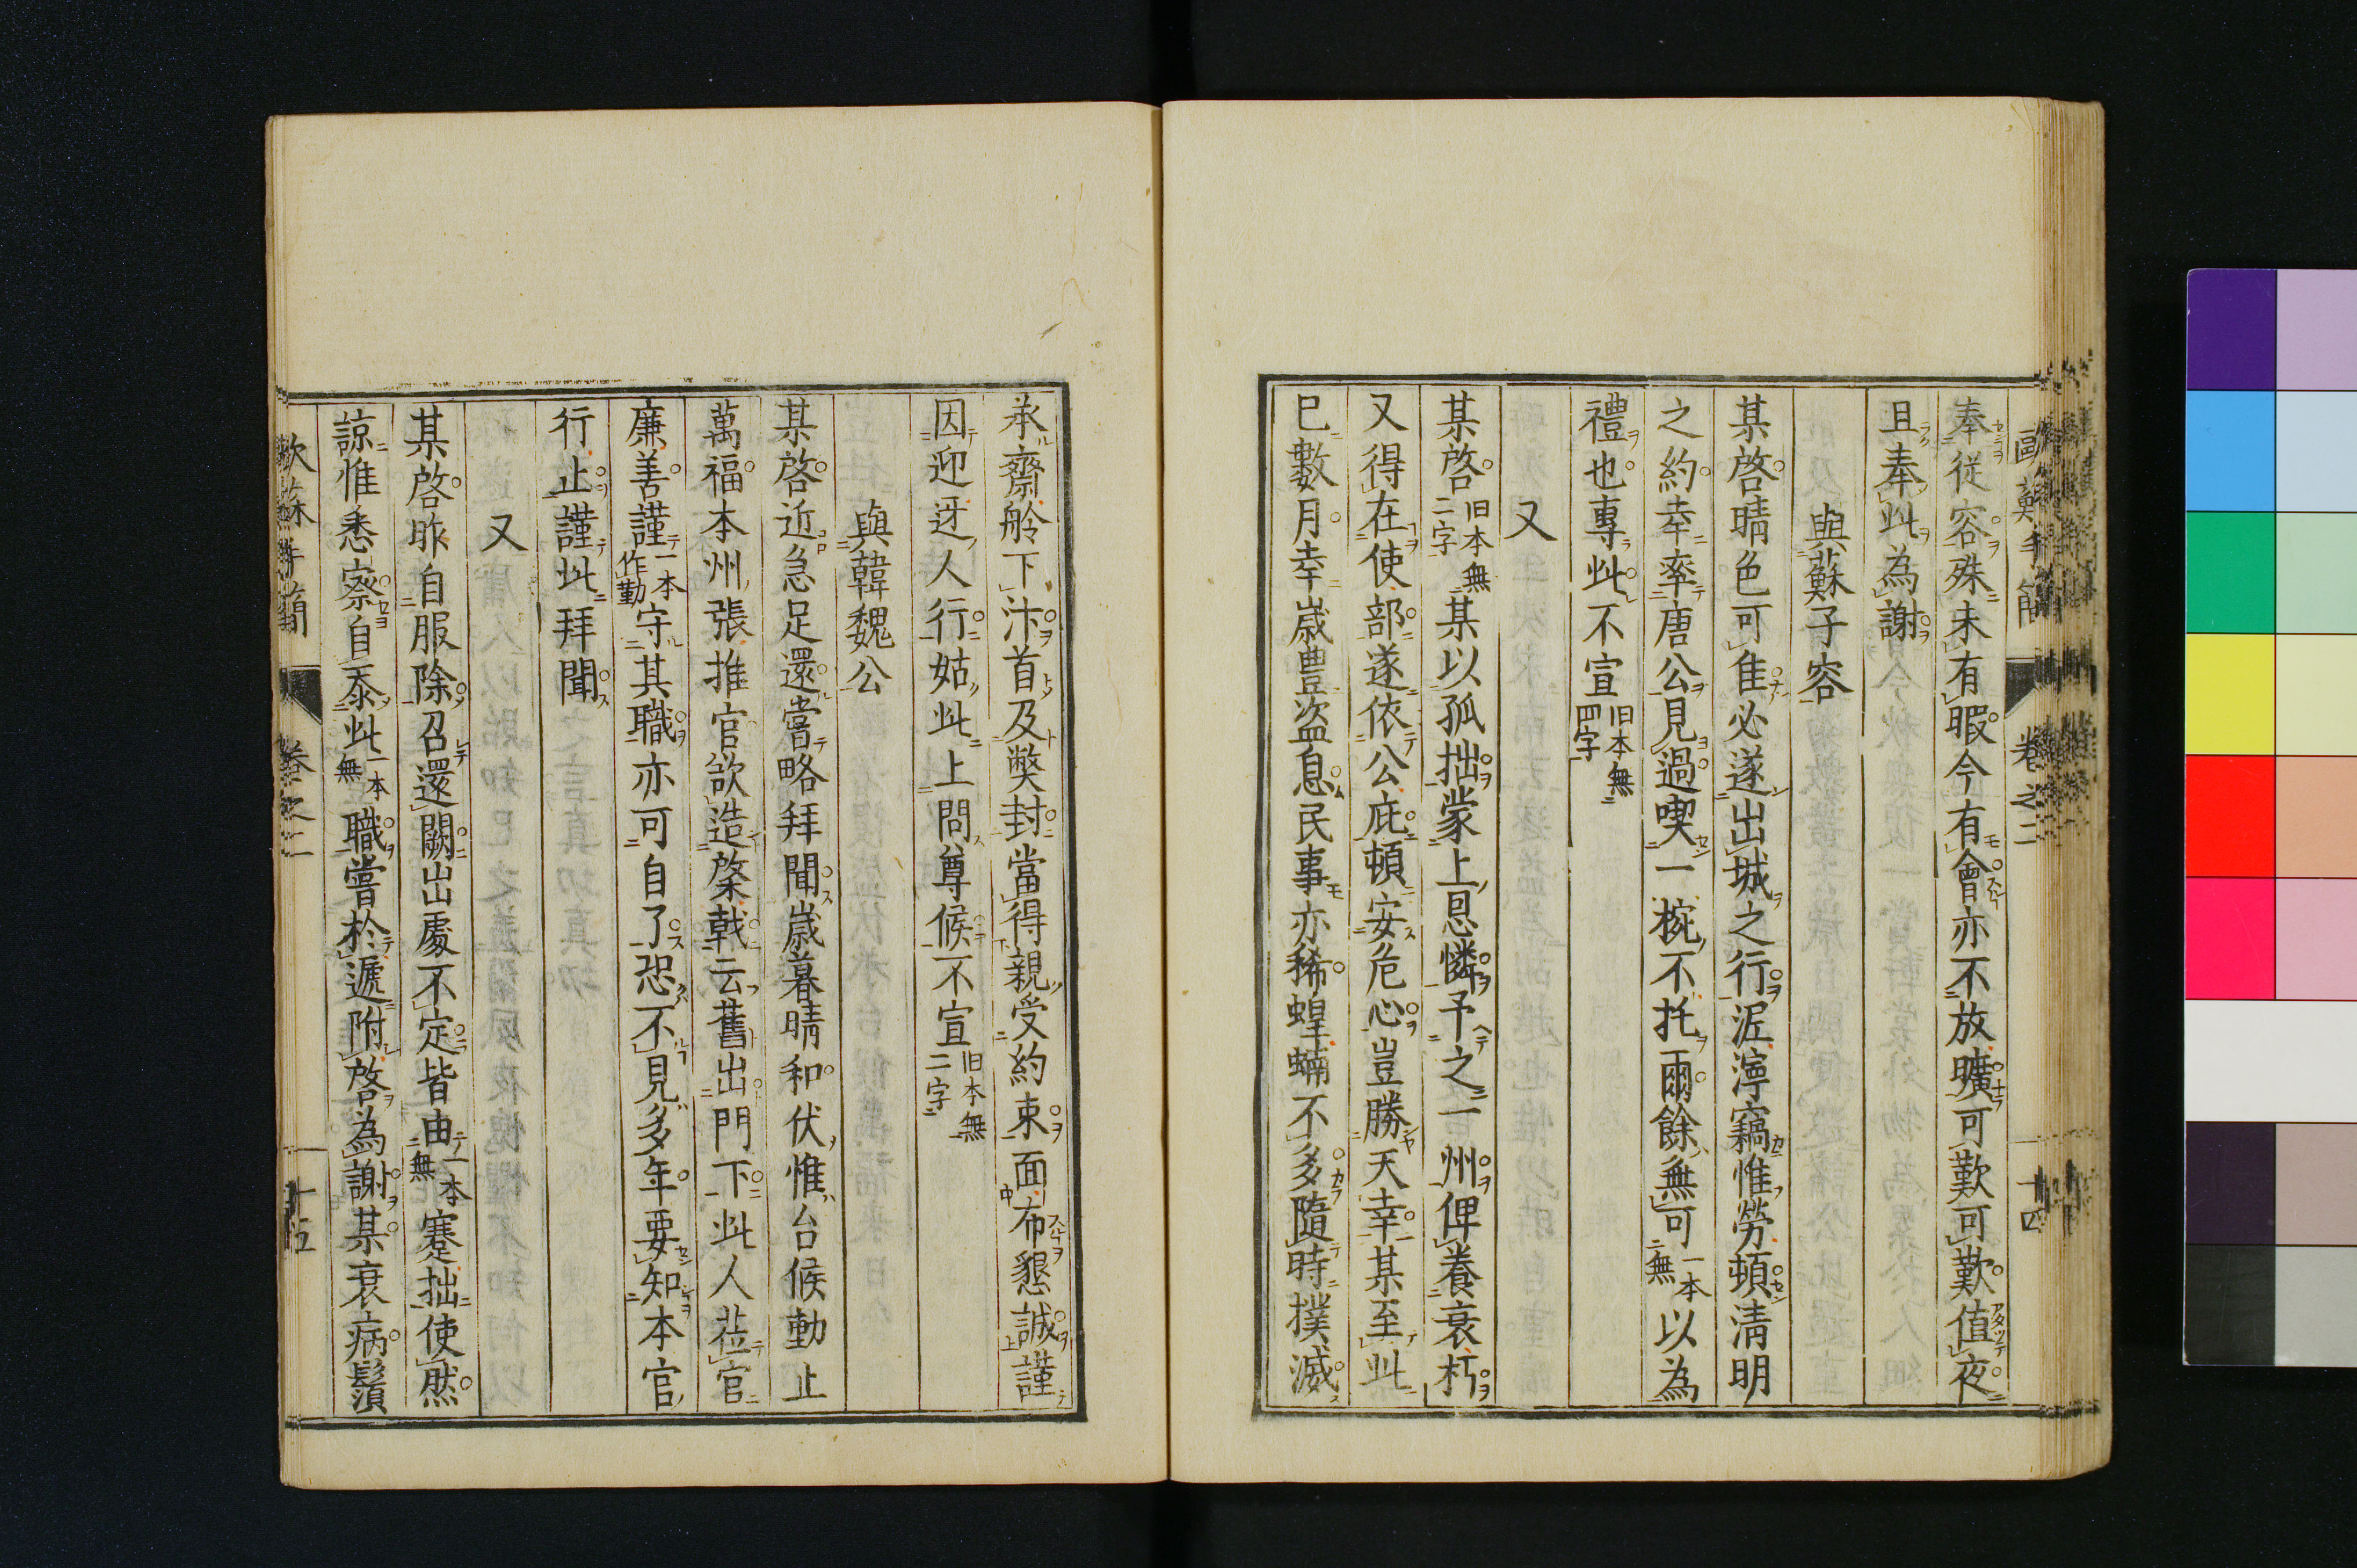 歐蘇手簡 卷之二 十四
奉從容殊未有暇今有會亦不放曠可歎可歎值夜
且奉此為謝
與蘇子容
某啓晴色可佳必遂出城之行泥濘竊惟勞頓清明
之約幸率唐公見過喫一椀不托爾餘無可一本無以為
禮也專此不宣旧本無四字
又
某啓旧本無二字某以孤拙蒙上恩憐予之一州俾養衰朽
又得在使部遂依公庇頓安危心豈勝天幸某至此
已數月幸歲豊盜息民事亦稀蝗蝻不多隨時撲滅
承齋舲下汴首及弊封當得親受約束面布懇誠謹
因迎迓人行姑此上問尊候不宣旧本無二字
與韓魏公
某啓近急足還嘗略拜聞歲暮晴和伏惟台候動止
萬福本州張推官欲造棨戟云舊出門下此人莅官
廉善謹一本作勤守其職亦可自了恐不見多年要知本官
行止謹此拜聞
又
某啓昨自服除召還闕出處不定皆由一本無蹇拙使然
諒惟悉察自忝此一本無職嘗於遞附啓為謝某衰病鬚
歐蘇手簡 卷之二 十五